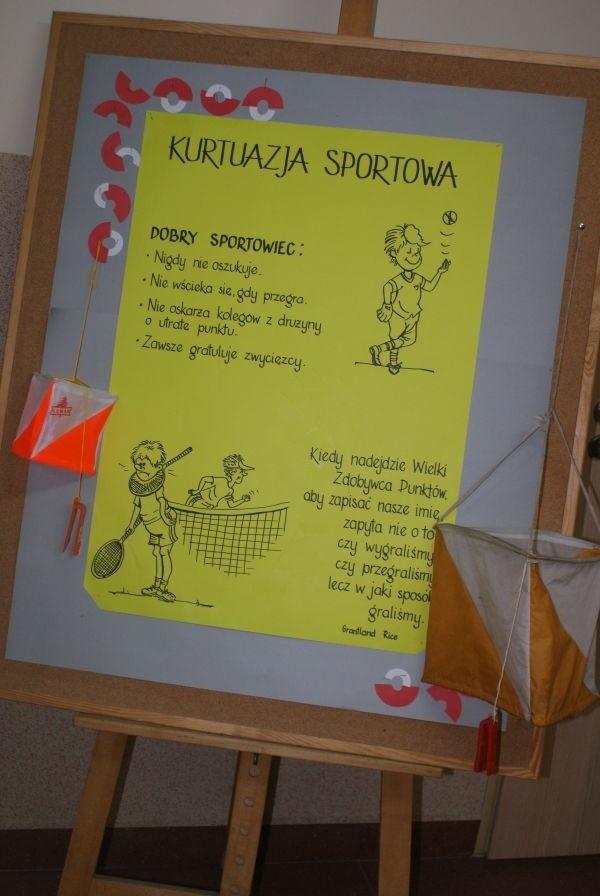 KURTUAZJA SPORTOWA
DOBRY SPORTOWIEC:
• Nigdy nie oszukuje.
• Nie wścieka się, gdy przegra.
• Nie oskarża kolegów z drużyny
o utratę punktu.
• Zawsze gratuluje zwycięzcy.
Kiedy nadejdzie Wielki
Zdobywca Punktów,
aby zapisać nasze imię,
zapyta nie o to
czy wygraliśmy
czy przegraliśmy
lecz w jaki sposób
graliśmy.
Grantland Rice